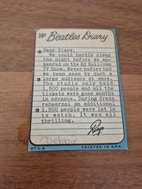 Beatles Diary
Dear Diary,
We could hardly sleep
the night before we ap-
peared on the Ed Sullivan
TV Show. Never before had
we been seen by such a
large audience at once.
The studio only held
1,500 people and all the
tickets were gone months
in advance. During dress
rehearsal an additional
1,500 people were let in
to watch. It was all
thrilling.
PRINTED IN U.S.A.